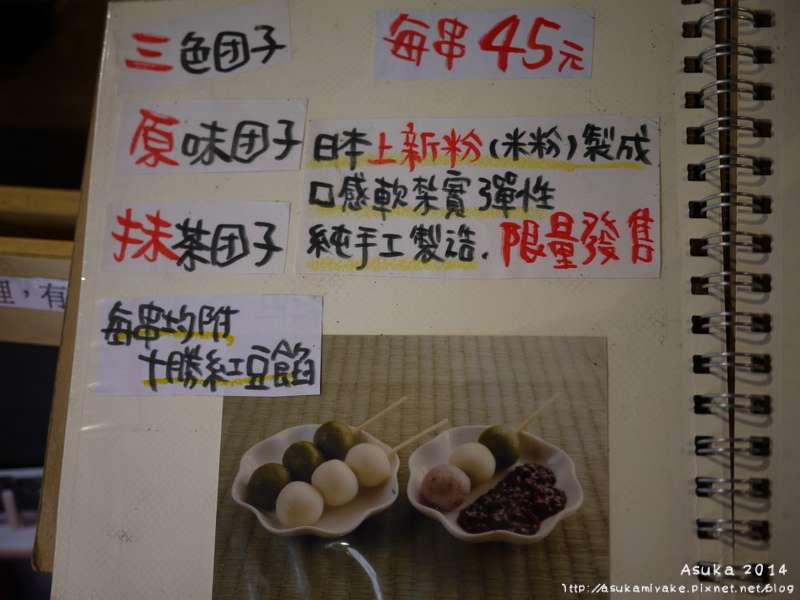 Asuka 2014
三色団子
每串45元
原味団子
日本上新粉(米粉)製成
口感軟紮實彈性
純手工製造.限量發售
抹茶団子
每串均附
十勝紅豆餡
裡,有
Asuka 2014
http://asukamiyake.pixnet.net/blog